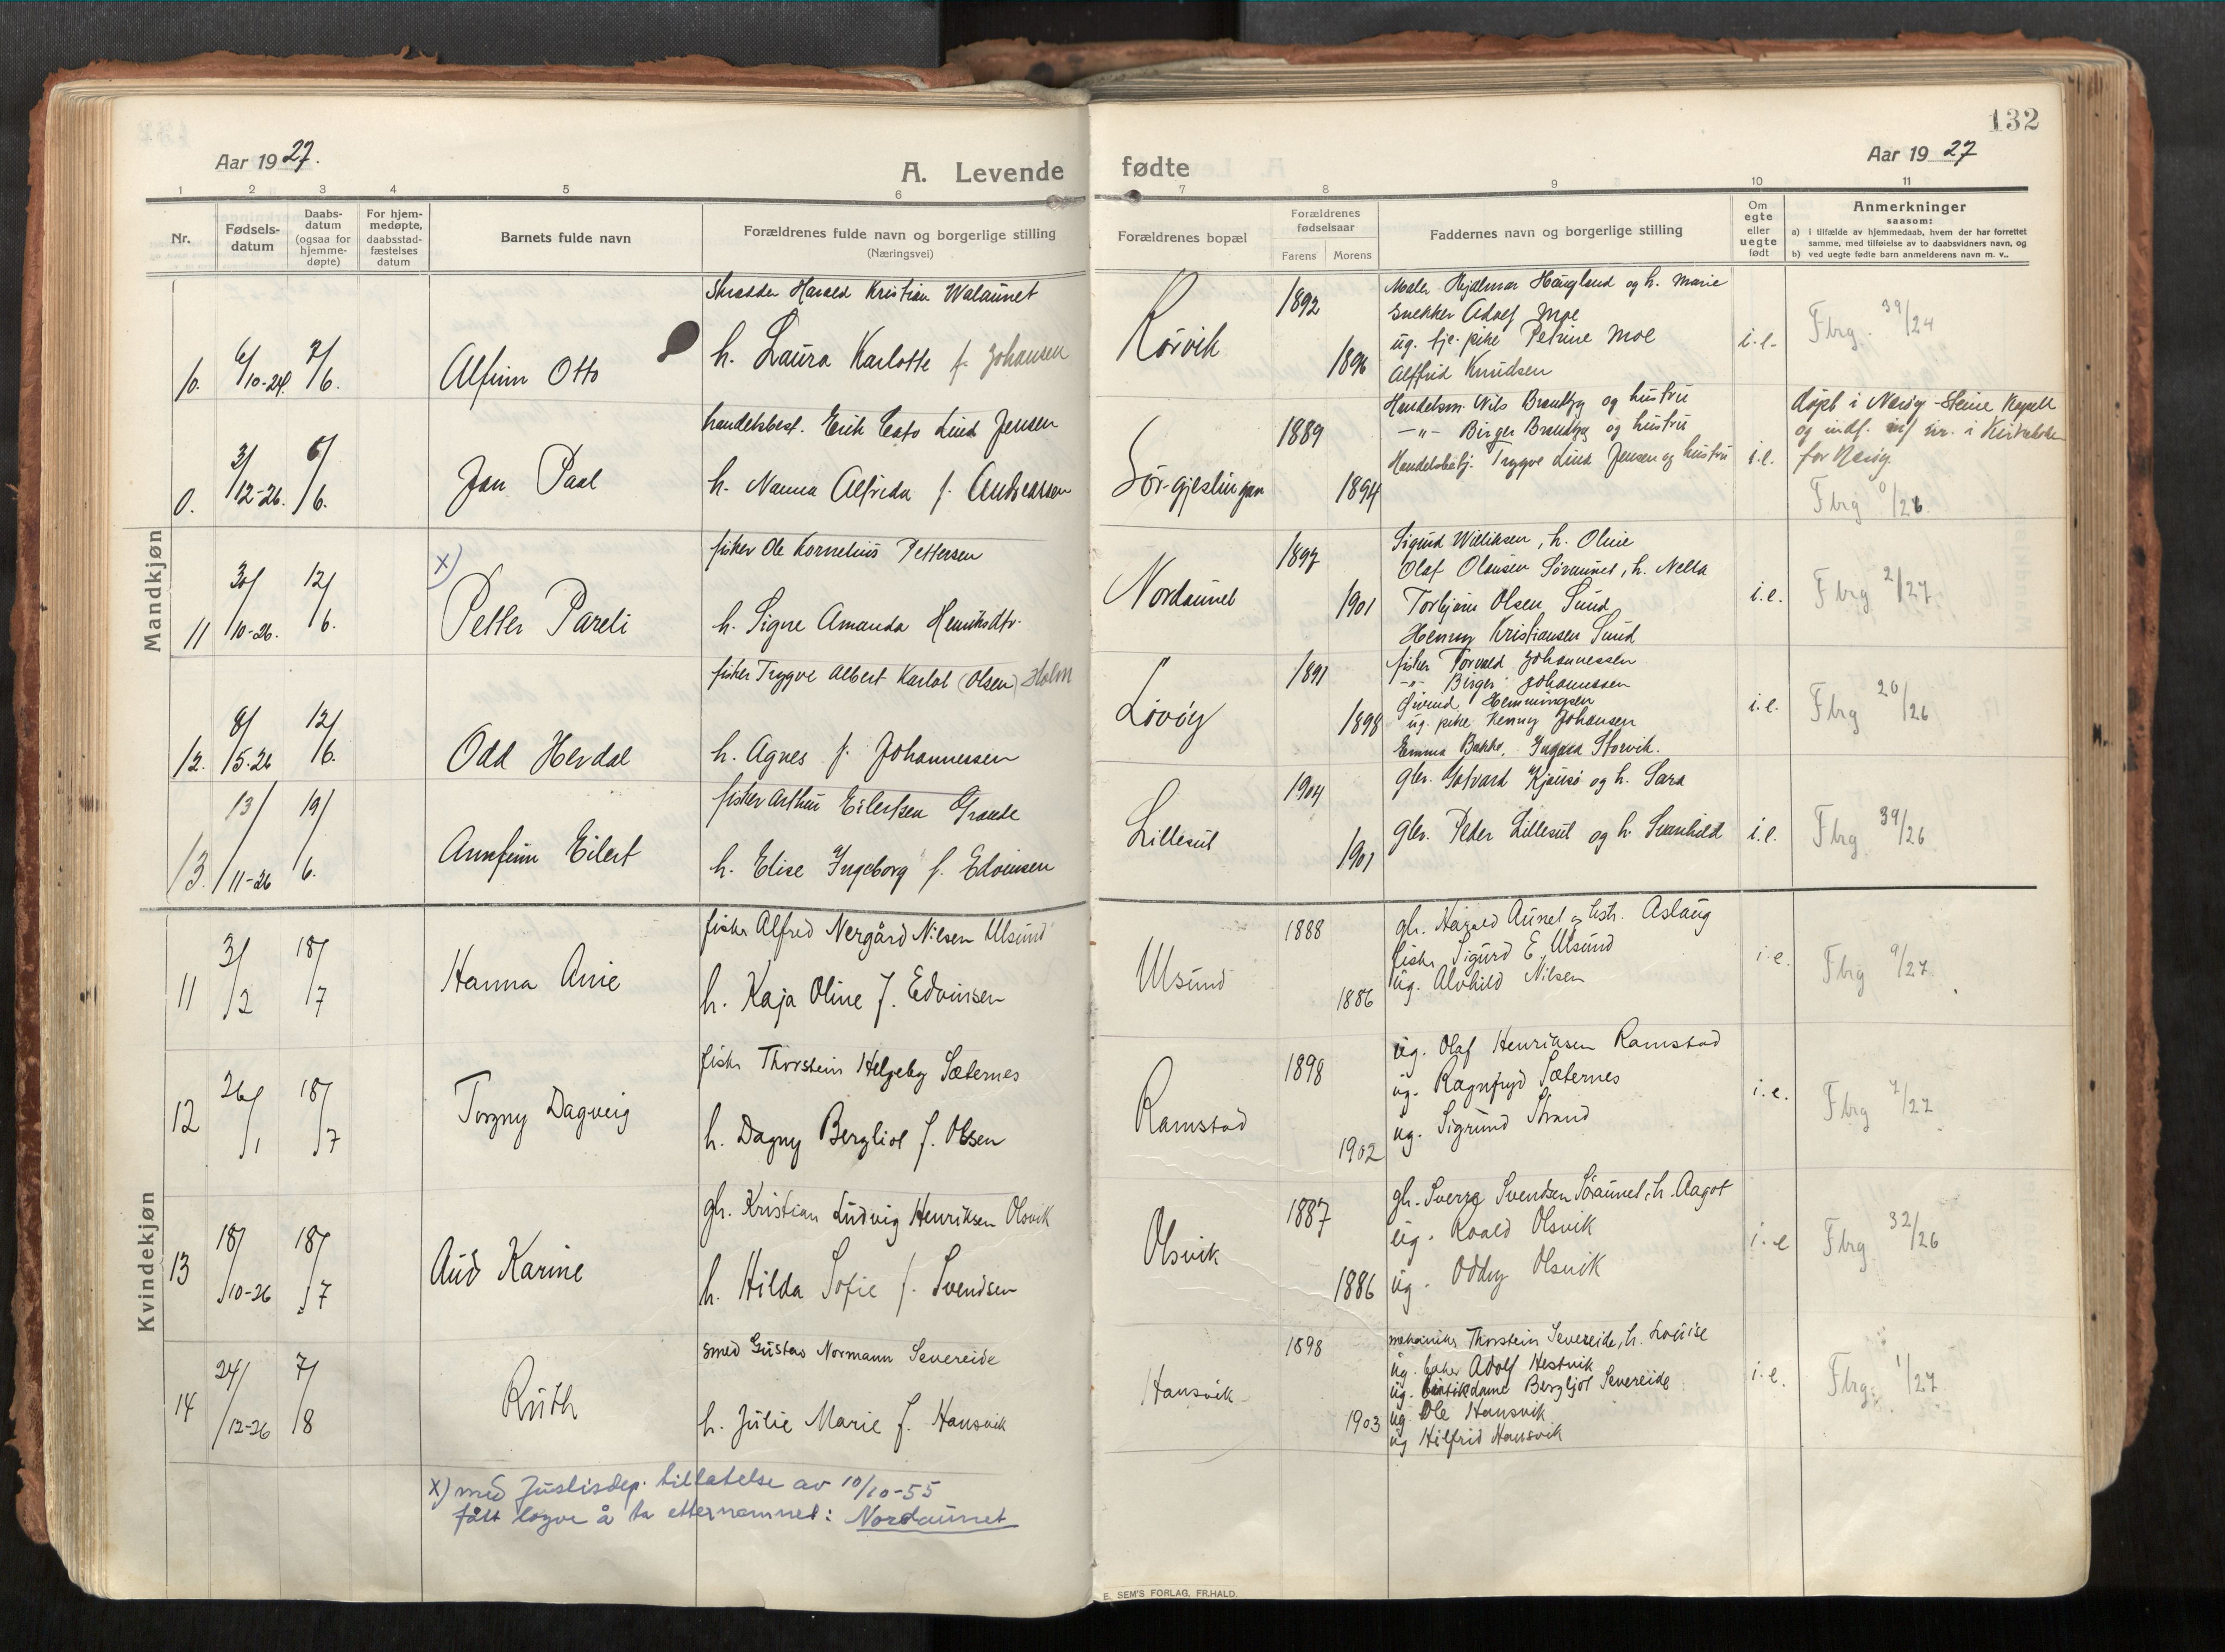 132
Aar 1927.
A. Levende fødte
Aar 1927
1 2 3 4 5 6 7 8 9 10 11
Nr.
Fødsels-
datum
Daabs-
datum
(ogsaa for
hjemme-
døpte)
For hjem-
medøpte,
daabsstad-
fæstelses
datum
Barnets fulde navn
Forældrenes fulde navn og borgerlige stilling
(Næringsvei)
Forældrenes bopæl
Forældrenes
fødselsaar
Farens Morens
Faddernes navn og borgerlige stilling
Om
egte
eller
uegte
født
Anmerkninger
saasom:
a) i tilfælde av hjemmedaab, hvem der har forrettet
samme, med tilføielse av to daabsvidners navn, og
b) ved uegte fødte barn anmelderens navn m. v..
Mandkjøn
10. 6/10-24. 7/6. Alfinn Otto
Skrædder Harald Kristian Walaunet
h. Laura Karlotte f. Johansen
Rørvik
1892
1896
Maler Hjalmar Haugland og h. Marie
Snekker Adolf Moe
ug. tje. pike Petrine Moe
Alffrid Knudsen
i.e.
Fbrg. 39/24
0. 3/12-26. 6/6. Jan Paal
handelsbest. Erik Cato Lind Jensen
h. Nanna Alfrida f. Andreassen
Sør-gjeslingan
1889
1894
Handelsm. Nils Brandtzg og hustru
-"- Birger Brandtzg og hustru
Handelsbetj. Trygve Lind Jensen og hustru
i.e.
døpt i Nærøy-Steine Kapell
og indf. m/ nr. i Kirkeboken
for Nærøy.
Fbrg 0/26
11 30/10-26. 12/6. x) Petter Pareli
fisker Ole Kornelius Pettersen
h. Signe Amanda Henriksdtr.
Nordaunet
1897
1901
Sigurd Williksen, h. Oline
Olaf Olausen Søraunet, h. Nella
Torbjørn Olsen Sund
Henny Kristiansen Sund
i.e.
Fbrg 2/27
12. 8/5-26 12/6. Odd Herdal
fisker Trygve Albert Karlot (Olsen) Holm
h. Agnes f. Johannessen
Lovøy
1891
1898
fisker Torvald Johannessen
-"- Birger Johannessen
Øivind Hemmingsen
ug. pike Henny Johansen
Emma Bakke, Ingvara Storvik.
i.e.
Fbrg 26/26
13. 13/11-26 19/6. Arnfinn Eilert
fisker Arthur Eilertsen Grande
h. Elise Ingeborg f. Edvinsen
Lillesut
1904
1901
gbr. Gotvard Kjønsø og h. Sara
gbr. Peder Lillesut og h. Svanhild
i.e.
Fbrg 39/26
Kvindekjøn
11 3/2 18/7 Hanna Arie
fisker Alfred Nergård Nilsen Ulsund
h. Kaja Oline f. Edvinsen
Ulsund
1888
1886
gb. Harald Aunet og hstr. Aslaug
fisker Sigurd E. Ulsund
ug. Alvhild Nilsen
i.e.
Fbrg 9/27
12 26/1 18/7 Torgny Dagveig
fisker Thorstein Helgeby Sæternes
h. Dagny Bergliot f. Olsen
Ramstad
1898
1902
ug. Olaf Henriksen Ramstad
ug. Ragnfryd Sæternes
ug. Sigrund Strand
i.e.
Fbrg 7/27
13 18/10-26 18/7 Aud Karine
gb. Kristian Ludvig Henriksen Olsvik
h. Hilda Sofie f. Svendsen
Olsvik
1887
1886
gb. Sverre Svendsen Søraunet, h. Aagot
ug. Roald Olsvik
ug. Oddny Olsvik
i.e
Fbrg. 32/26
14 24/12-26 7/8 Ruth
smed Gustav Normann Severeide
h. Julie Marie f. Hansvik
Hansvik
1898
1903
mekaniker Thorstein Severeide, h. Louise
ug. baker Adolf Hestvik
ug. butikdame Bergljot Severeide
ug. Ole Hansvik
ug Hilfrid Hansvik
i.e.
Fbrg: 1/27
x) med Justisdep. tillatelse av 10/10-55
fått løyve å ta etternamnet: Nordaunet
E. SEM'S FORLAG, FR.HALD.